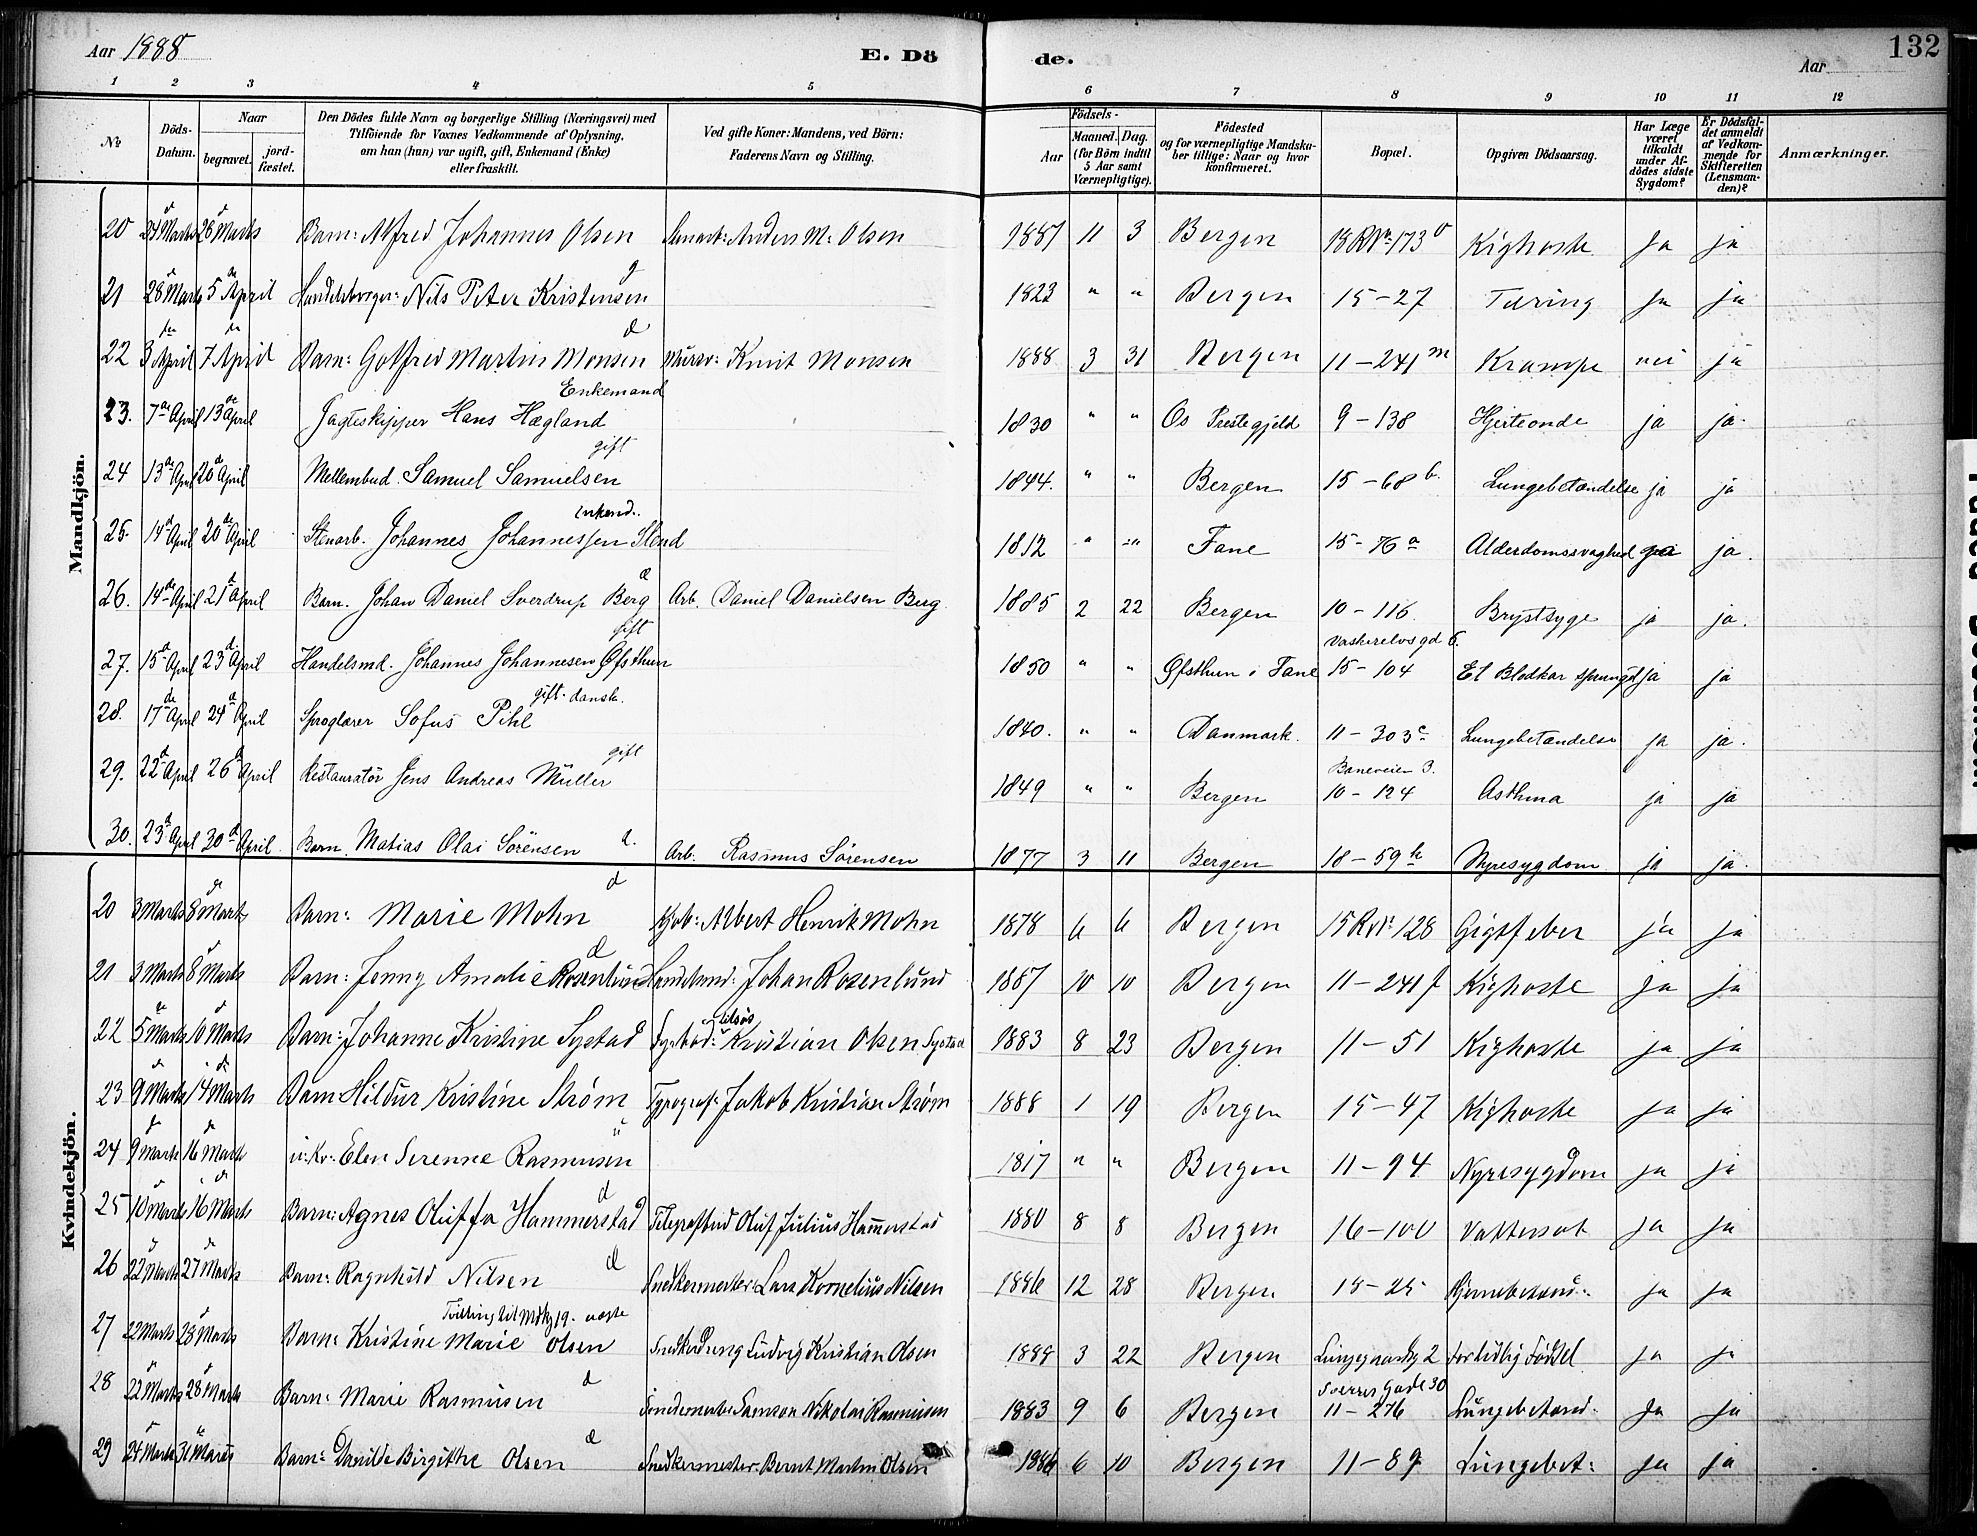 Aar 1888 E. Dö de. Aar 132
1 2 3 4 5 6 7 8 9 10 11 12
№ Döds-Datum. Naar begravet. jord-fæstet. Den Dödes fulde Navn og borgerlige Stilling (Næringsvei) med Tilföiende for Voxnes Vedkommende af Oplysning, om han (hun) var ugift, gift, Enkemand (Enke) eller fraskilt. Ved gifte Koner: Mandens, ved Börn: Faderens Navn og Stilling. Födsels- Aar Maaned. Dag. (for Börn indtil 5 Aar samt Værnepligtige). Födested og for værnepligtige Mandska-ber tillige: Naar og hvor konfirmeret. Bopæl. Opgiven Dödsaarsag. Har Læge været tilkaldt under Af-dödes sidste Sygdom? Er Dödsfal-det anmeldt af Vedkom-mende for Skifteretten (Lensman-den)? Anmærkninger.
Mandkjön.
20 24 Marts 28 Marts Barn: Alfred Johannes Olsen Anders M. Olsen 1887 11 3 Bergen 18 R№ 173 Kighoste Ja ja
21 28 Marts 5 April Handelsborger: Nils Peter Kristensen g 1823 " " Bergen 15-27 Tæring Ja ja
22 3 April 7 April Barn: Gotfred Martin Monsen d Murar: Knut Monsen 1888 3 31 Bergen 11-241 m Krampe nei ja
23. 7de April 13de April Jagtskipper Hans Hægland Enkemand 1830 " " Os Prestegjeld 9-138 Hjerteonde ja ja.
24 13de April 20de April Mellembud. Samuel Samuelsen gift 1844. " " Bergen 15-68 b. Lungebetændelse ja ja
25. 14d April 20de April Stenarb. Johannes Johannessen Stend 1812 " " Fane 15-76 a Alderdomssvaghed ja.
26. 14de April 21d April Barn. Johan Daniel Sverdrup Berg d Arb. Daniel Danielsen Berg. 1885 2 22 Bergen 10-116. Brystsyge ja ja.
27. 15d April 23d April Handelsmd. Johannes Johannesen Øfsthun Gift 1850 " " Øfsthun i Fane 15-104 Et Blodkar ja ja
28. 17de April 24d April Sproglærer Sofus Pihl gift. dansk. 1840. " " Danmark. 11-303 c Lungebetændelse ja ja.
29. 22d April 26d April Restauratør Jens Andreas Müller gift 1849 " " Bergen Baneveien 3. 10-124 Asthma ja ja
30. 23d April 30d April. Barn. Matias Olai Sörensen d. Arb. Rasmus Sörensen 1877 3 11 Bergen 18-59 Nyresygdom ja ja.
Kvindekjön.
20 3 Marts 8 Marts Barn: Marie Mohn d Kjøb: Albert Henrik Mohn 1878 6 6 Bergen 15 R№ 128 Gigtfeber ja ja
21 3 Marts 8 Marts Barn: Jenny Amalie Rosenlund d Johan Rosenlund 1887 10 10 Bergen 11-241 f Kighoste ja ja
22 5 Marts 10 Marts Barn: Johanne Kristine Systad Kristian Olsen Systad 1883 8 23 Bergen 11-51 Kighoste ja ja
23 9 Marts 14 Marts Barn Hildur Kristine Strøm Typograf: Jakob Kristian Strøm 1888 1 19 Bergen 15-47 Kighoste ja ja
24 9 Marts 16 Marts Elen Serenne Rasmusen 1817 " " Bergen 11-94 Nyresygdom ja ja
25 10 Marts 16 Marts Barn: Agnes Oluffa Hammerstad d Telegrafbud Oluf Julius Hammerstad 1880 8 8 Bergen 16-100 Vattersot ja ja
26 22 Marts 27 Marts Barn: Ragnhild Nilsen d Snedkermester: Lars Kornelius Nilsen 1886 12 28 Bergen 18-25 ja ja
27 22 Marts 28 Marts Barn: Kristine Marie Olsen Ludvig Kristian Olsen 1888 3 22 Bergen 2 Fortidlig Fødsel ja ja
28 22 Marts 28 Marts Barn: Marie Rasmusen d Samson Nikolai Rasmusen 1883 9 6 Bergen Sverres Gade 30 11-276 Lungebetænd. Ja ja
29 24 Marts 31 Marts Barn: Birgitte Olsen d Snedkermester: Bernt Martin Olsen 1886 6 10 Bergen 11-89 Lungebet: ja ja